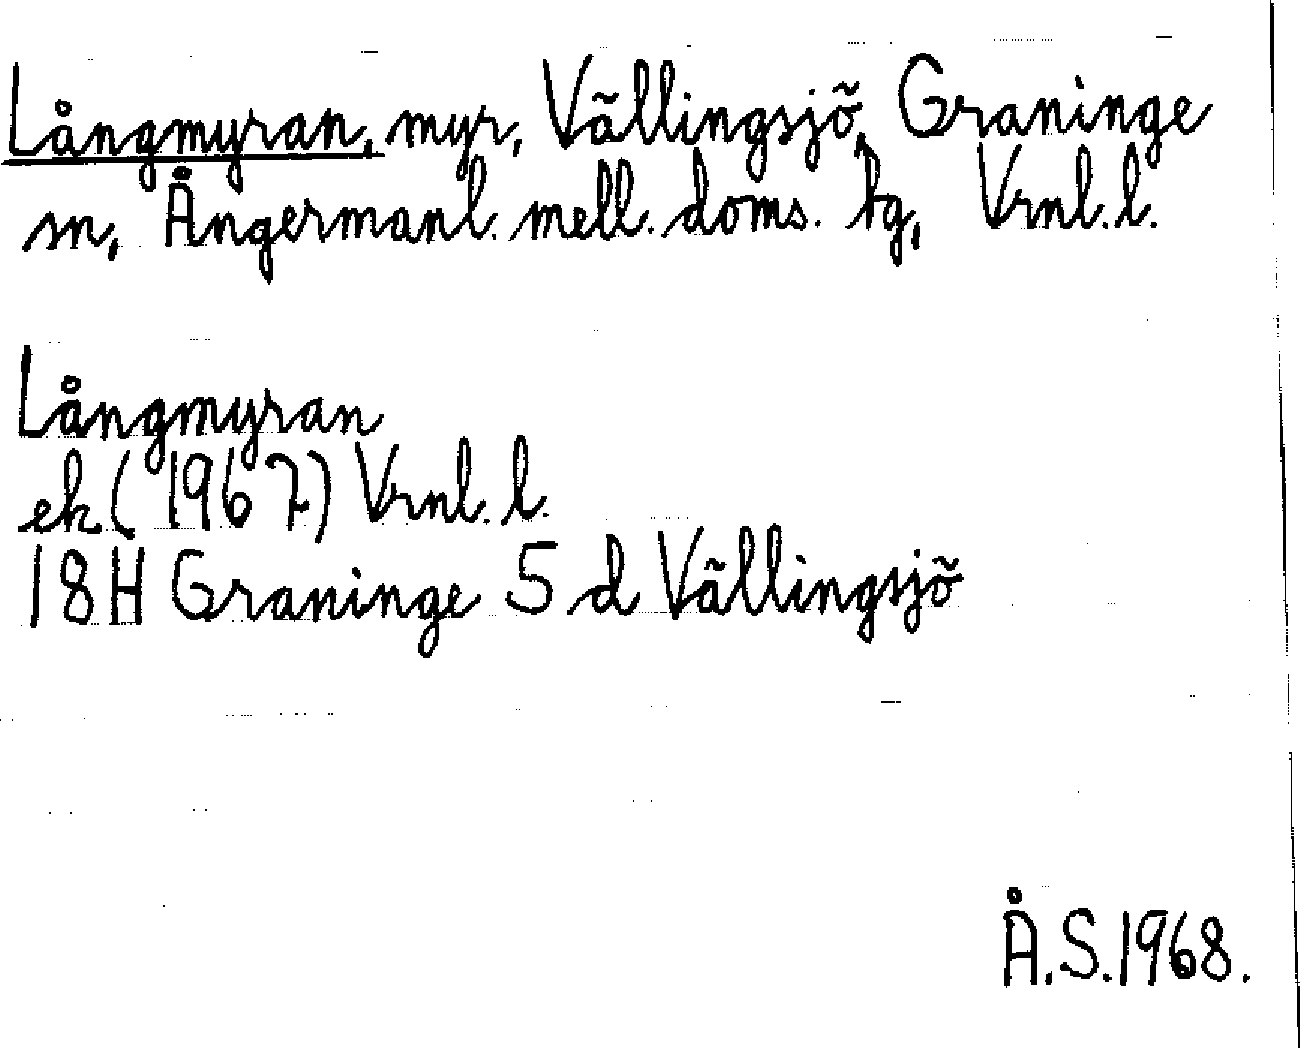 Långmyran, myr, Vällingsjö, Graninge
sn, Ångermanl. mell. doms. hg, Vrnl.l.
Långmyran
ek (1967) Vrnl.l.
18H Graninge 5 d Vällingsjö
Å.S.1968.